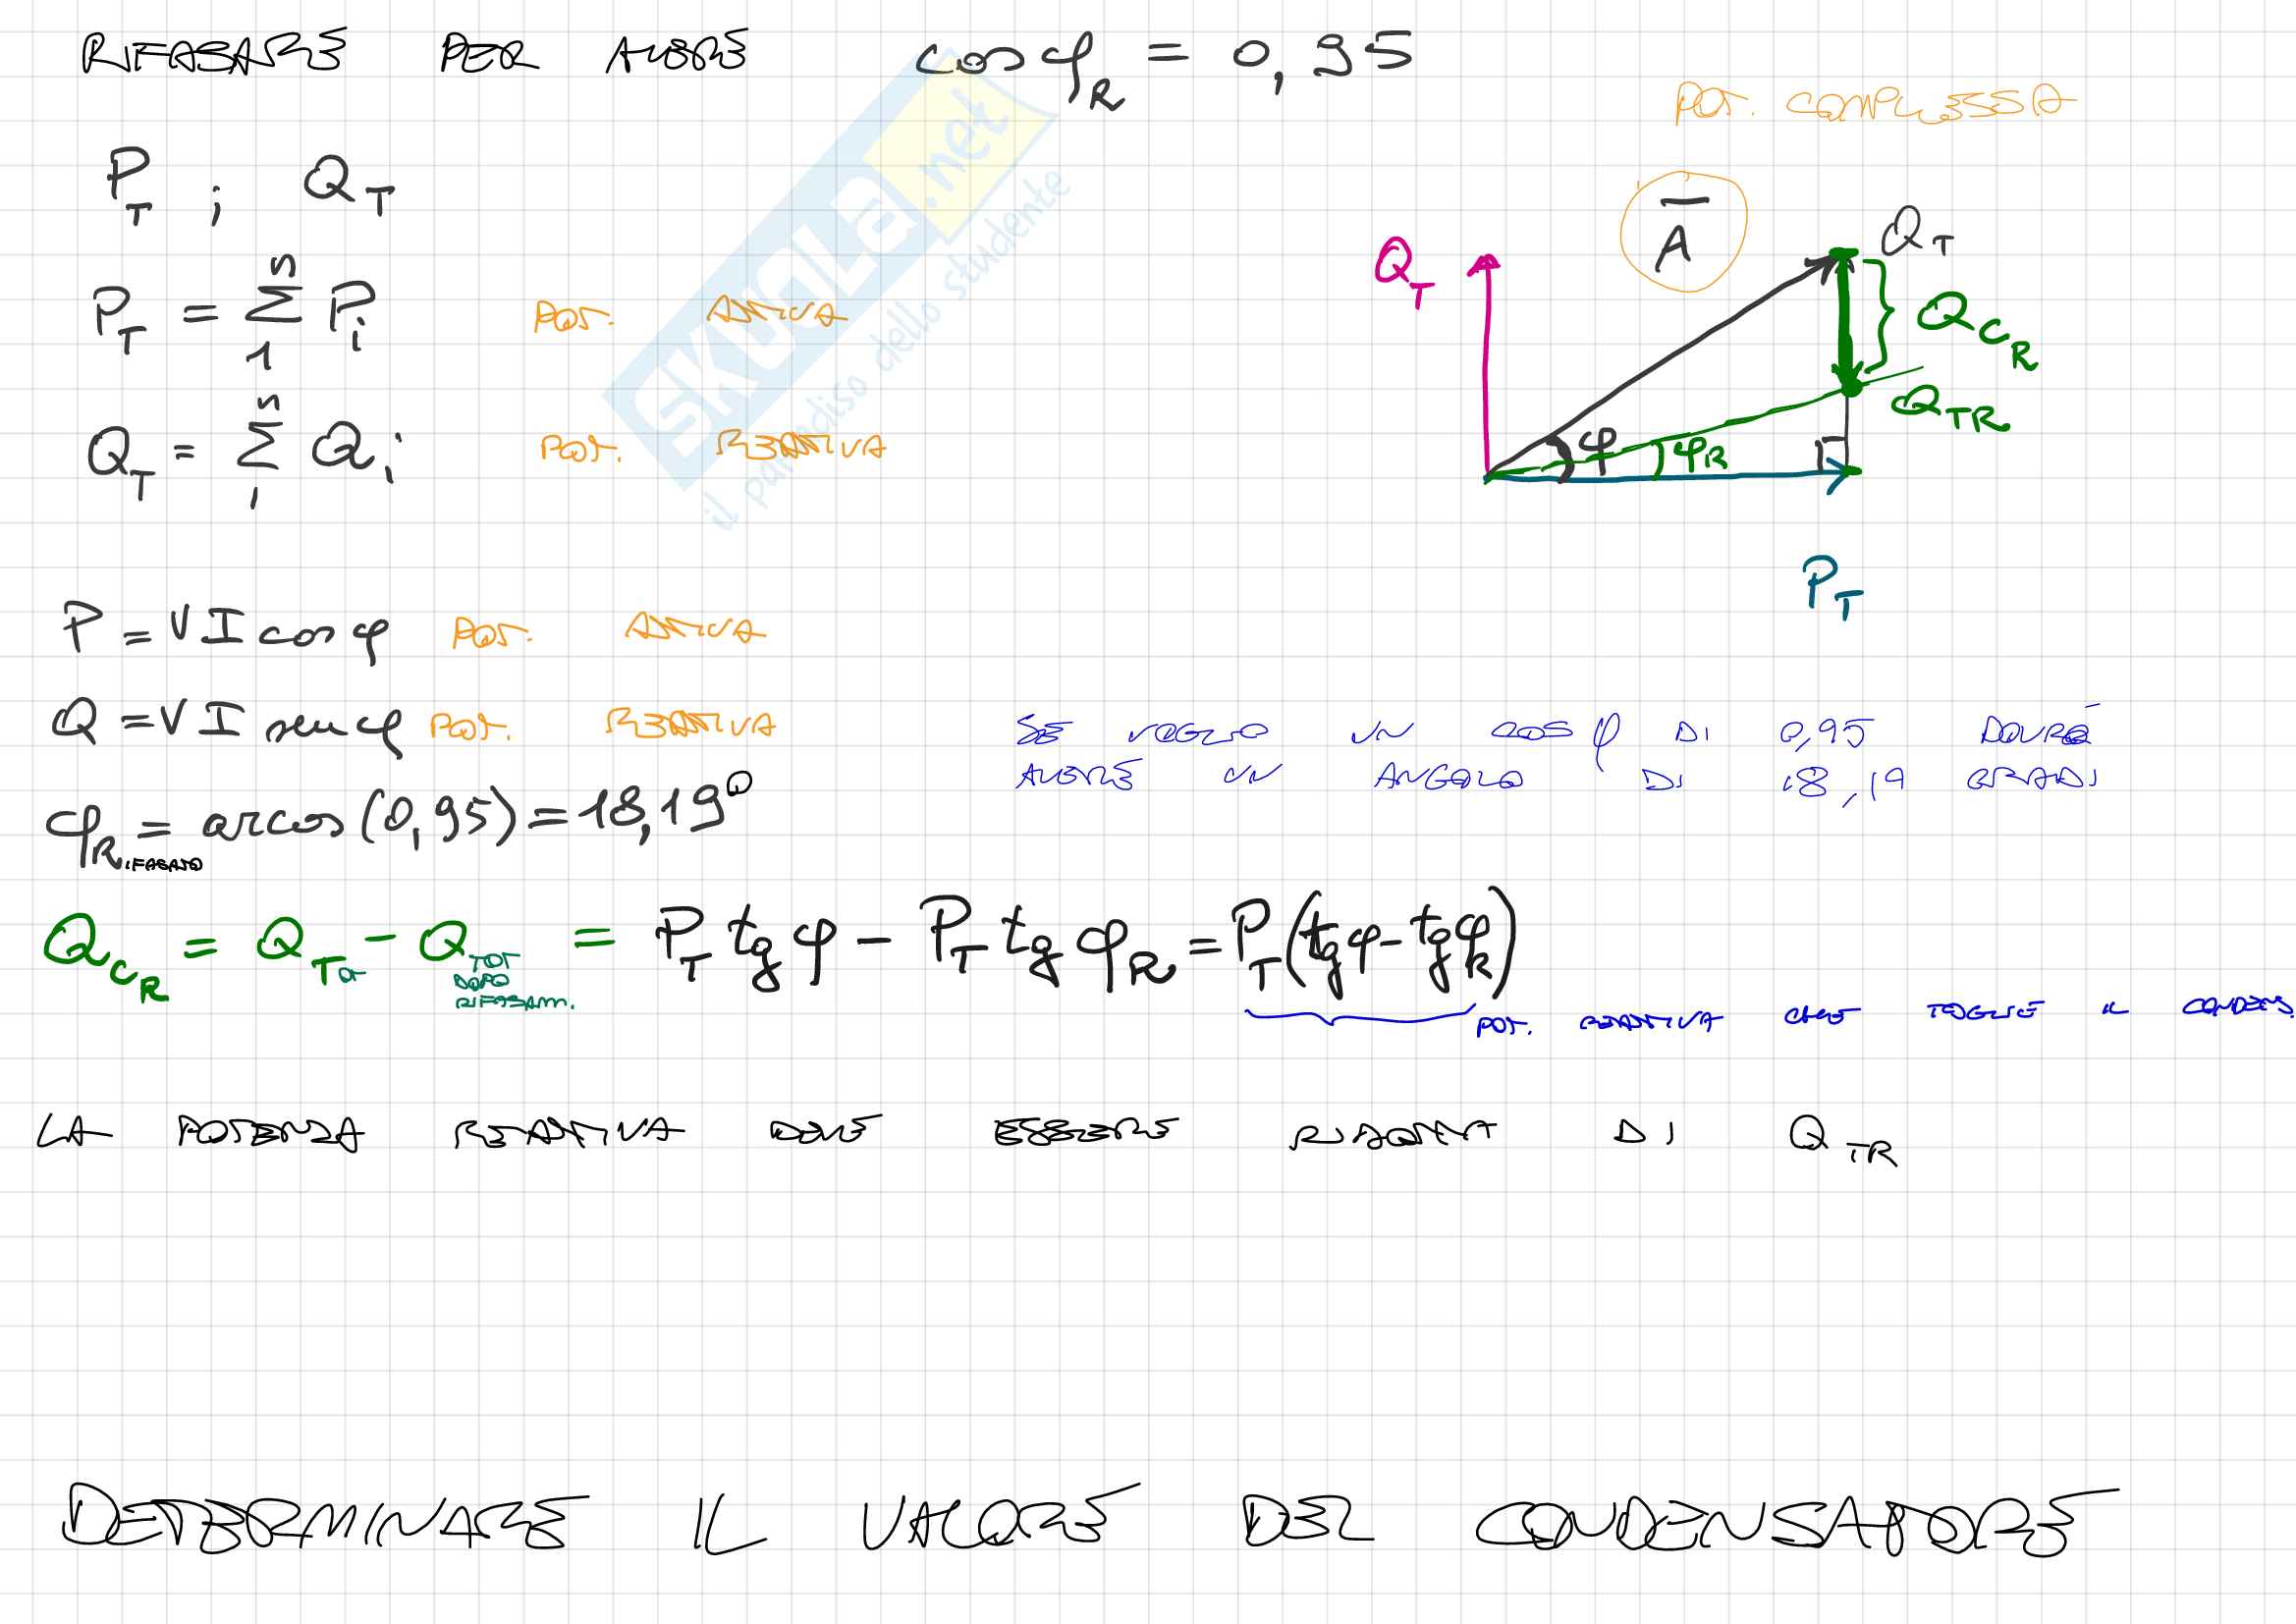 RIFASARE PER AVERE cos φ_R = 0,95
POT. COMPLESSA
P_T ; Q_T
P_T = Σ_1^n P_i POT. ATTIVA
Q_T = Σ_i^n Q_i POT. REATTIVA
Q_T
A̅
Q_T
Q_{C_R}
Q_TR
φ
φ_R
P_T
P = V I cos φ POT. ATTIVA
Q = V I sen φ POT. REATTIVA
SE VOGLIO UN COS φ DI 0,95 DOVRÒ
AVERE UN ANGOLO DI 18,19 GRADI
φ_R = arcos (0,95) = 18,19°
IFASATO
Q_{C_R} = Q_{TOT} - Q_{TOT DOPO RIFASAM.} = P_T tg φ - P_T tg φ_R = P_T (tg φ - tg φ_R)
POT. REATTIVA CHE TOGLIE IL CONDENS.
LA POTENZA REATTIVA DEVE ESSERE RIDOTTA DI Q_TR
DETERMINARE IL VALORE DEL CONDENSATORE
SKUOLA.net
il paradiso dello studente